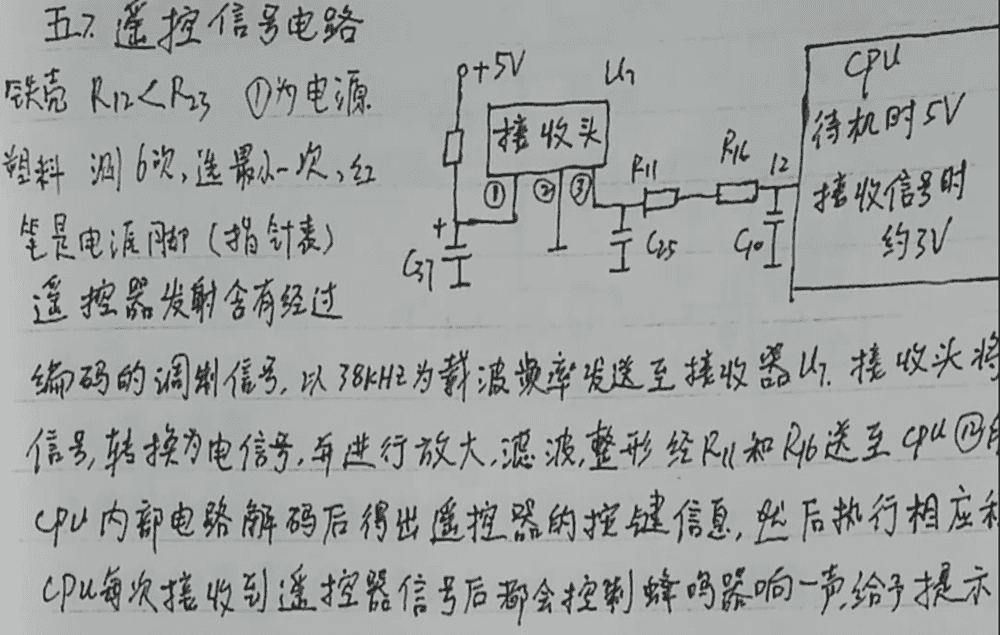 五7. 遥控信号电路
铁壳 R12<R23 ①为电源
塑料 测6次,选最小一次,红
笔是电源脚(指针表)
遥控器发射含有经过
编码的调制信号,以38KHZ为载波频率发送至接收器U7.接收头将
信号,转换为电信号,再进行放大.滤波,整形经R11和R16送至CPU⑫
CPU内部电路解码后得出遥控器的按键信息,然后执行相应
CPU每次接收到遥控器信号后都会控制蜂鸣器响一声,给予提示
+5V
U7
接收头
① ② ③
+
C37
R11
C25
R16
12
CPU
待机时5V
接收信号时
约3V